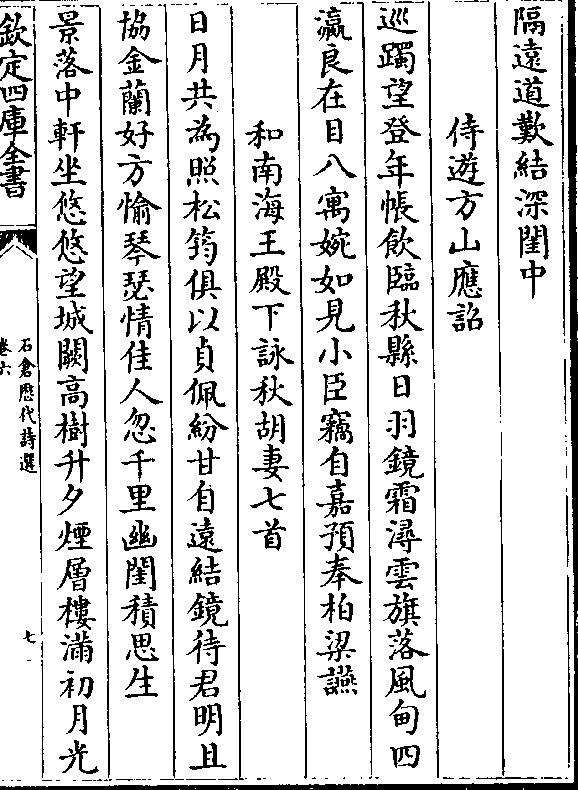 隔遠道歎結深閨中
侍遊方山應詔
巡躅望登年帳飲臨秋縣日羽鏡霜潯雲旗落風甸四
瀛良在目八寓婉如見小臣竊自嘉預奉柏梁讌
和南海王殿下詠秋胡妻七首
日月共為照松筠俱以貞佩紛甘自遠結鏡待君明且
協金蘭好方愉琴瑟情佳人忽千里幽閨積思生
景落中軒坐悠悠望城闕高樹升夕煙層樓滿初月光
欽定四庫全書
石倉歷代詩選
卷六
七